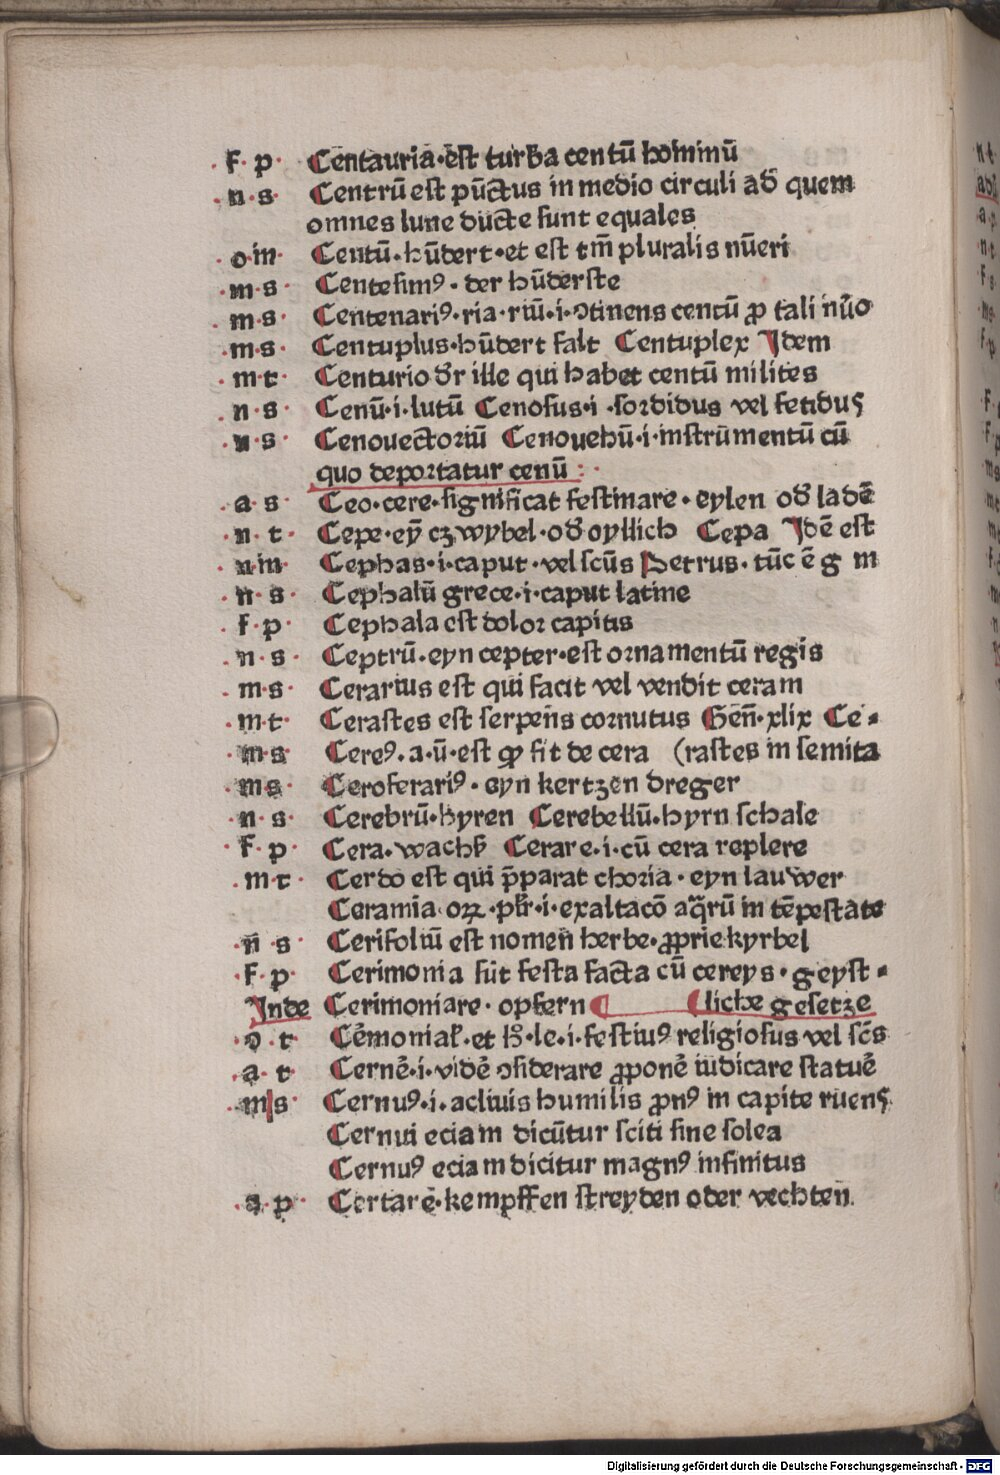 f p Centauria·est turba centū hominū
n·s· Centrū est pūctus in medio circuli ad quem
omnes lune ducte sunt equales
o·m· Centū·hūdert·et est tm̄ pluralis nūeri
·m·s· Centesimꝰ·der hūderste
m·s· Centenariꝰ·ria·riū·i·ꝯtinens centū ꝓ tali nūo
m·s· Centuplus·hūdert falt Centuplex Idem
·m·t· Centurio dr ille qui habet centū milites
·n·s· Cenū·i·lutū Cenosus·i·sordidus vel fetidus
·n·s· Cenouectoriū Cenouehū·i·instrūmentū cū
quo deportatur cenū:·
·a·s· Ceo·cere·significat festinare·eylen od̄ ladē
·n·t· Cepe·eȳ czwybel·od̄ oyllich Cepa Idē est
·n·m· Cephas·i·caput·vel scūs Petrus·tūc ē g m
·n·s· Cephalū grece·i·caput latine
·f·p· Cephala est dolor capitis
·n·s· Ceptrū·eyn cepter·est ornamentū regis
·m·s· Cerarius est qui facit vel vendit ceram
·m·t· Cerastes est serpens cornutus Gen̄·xlix Ce⸗
·m·s· Cereꝰ·a·ū·est ꝙ fit de cera (rastes in semita
·m·s· Ceroferariꝰ·eyn kertzen dreger
·n·s· Cerebrū·hyren Cerebellū·hyrn schale
·f·p· Cera·wachß Cerare·i·cū cera replere
·m·t· Cerdo est qui p̄parat choria·eyn lauwer
Ceramia oꝝ·plr·i·exaltacō aq̄rū in tēpestate
·n·s· Cerifoliū est nomen herbe·ꝓprie kyrbel
·f·p· Cerimonia sūt festa facta cū cereys·geyst⸗
Inde Cerimoniare·opfern (liche gesetze
·o·t· Cēmonial'·et hꝰ·le·i·festiuꝰ religiosus vel scs
·a·t· Cernē·i·vidē ꝯsiderare ꝓponē iudicare statuē
·m·s· Cernuꝰ·i·acliuis humilis ꝓnꝰ in capite ruens
Cernui eciam dicūtur sciti sine solea
Cernuꝰ eciam dicitur magnꝰ infinitus
·a·p· Certare·kempffen streyden oder vechten
Digitalisierung gefördert durch die Deutsche Forschungsgemeinschaft - DFG